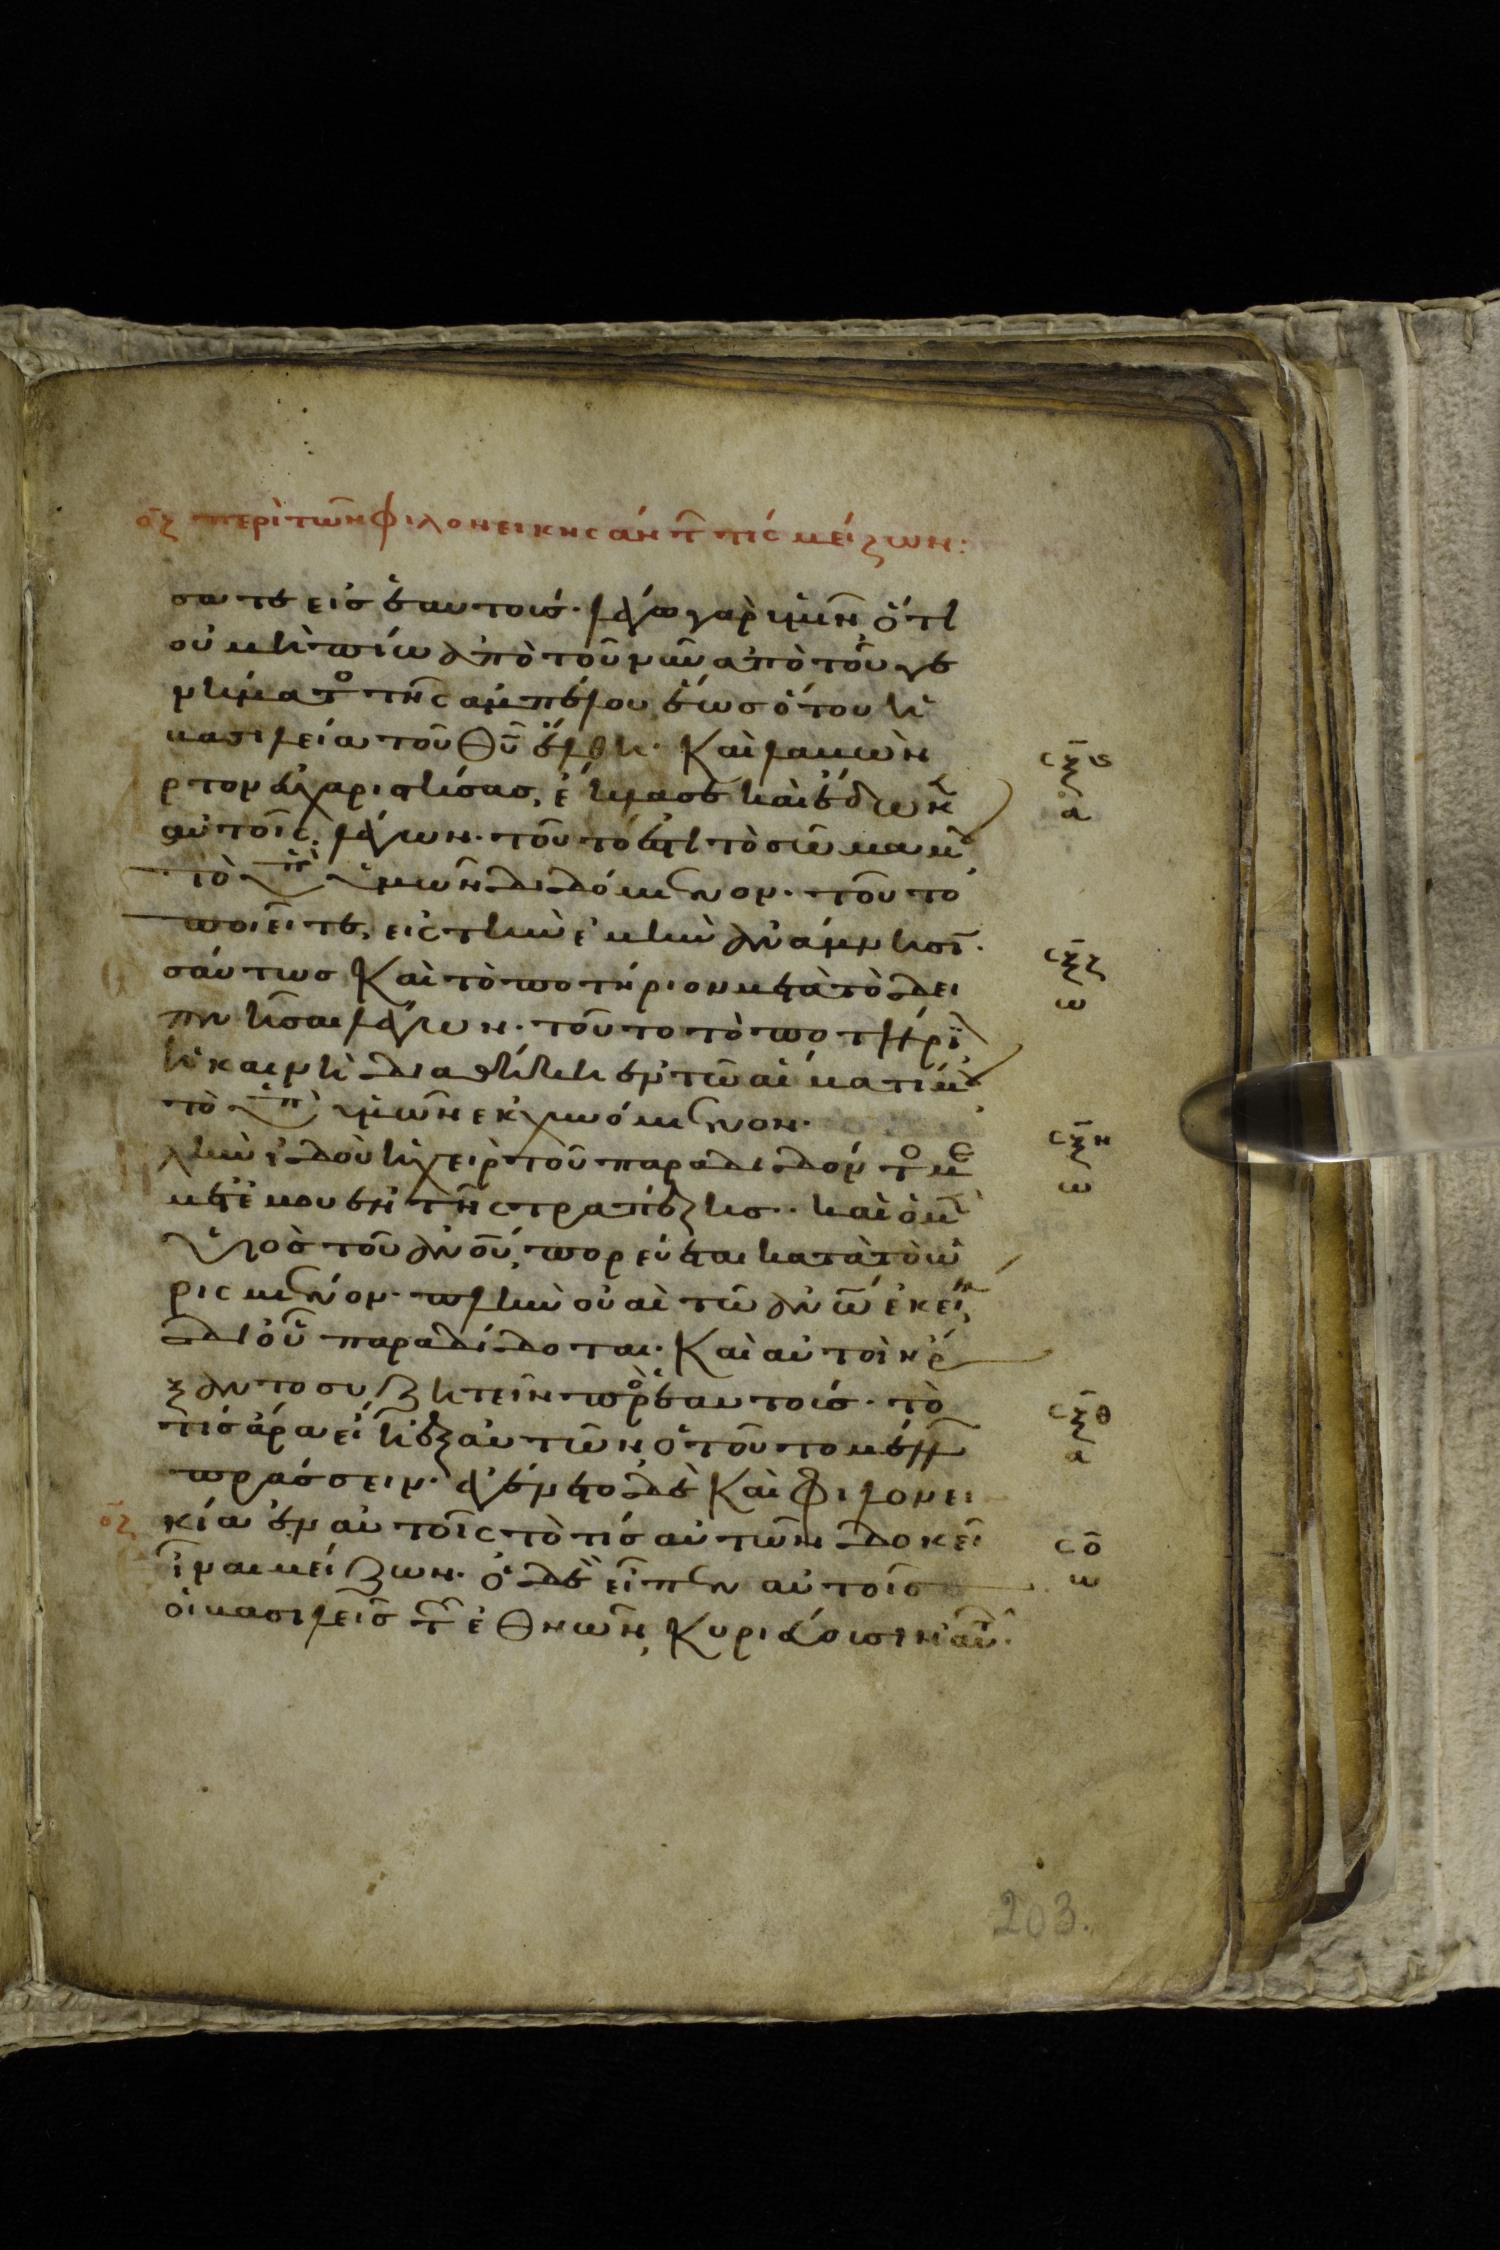 ο̅ζ περὶ τῶν φιλονεικησάντ̅ τίς μείζων:
σατε εἰς ἑαυτοις· λέγω γὰρ ὑμῖν ὅτι
οὐ μὴ πίω ἀπὸ τοῦ νῦν ἀπὸ τοῦ γε
νήματο τῆς αμπέλου ἕως ὅτου ἡ
βασιλεία τοῦ θ̅υ̅ ἔλθη· Καὶ λαβὼν
ρτον εὐχαριστήσας, ἔκλασε καὶ ἔδωκ
αὐτοῖς λέγων· τοῦτό ἐστι τὸ σῶμα μ
τὸ ὑπὲρ ὑμῶν διδόμενον· τοῦτο
ποιεῖτε, εἰς τὴν ἐμὴν ἀνάμνησῑ·
σαύτως Καὶ τὸ ποτήριον μετὰ τὸ δει
πνῆσαι λέγων· τοῦτο τὸ ποτήρι
ἡ καινὴ διαθήκη ἐν τῶ αἵματί μ
τὸ ὑπὲρ ὑμῶν εκχυνόμενον·
λὴν ἰδοὺ ἡ χεὶρ τοῦ παραδιδόντο με
μετ' ἐμου ἐπὶ τῆς τραπέζης· καὶ ὁ μ
υἱὸς τοῦ ἀν̅ου̅, πορεύεται κατὰ τὸ ὡ
ρισμένον· πλὴν οὐαὶ τῶ ἀν̅ω̅ ἐκεί
δι' οὗ παραδίδοται· Καὶ αὐτοὶ ἤρ
ξαντο συζητεῖν προς ἑαυτοις· τὸ
τίς ἄρα εἴη ἐξ αὐτῶν ὁ τοῦτο μέλλ
πράσσειν· ἐγένετο δὲ Καὶ φιλονει
ο̅ζ κία ἐν αὐτοῖς τὸ τίς αὐτῶν δοκεῖ
εἶναι μείζων· ὁ δὲ εἶπεν αὐτοῖς
οἱ βασιλεῖς τ̅ ἐθνῶν, Κυριεύουσιν αὐτ·
σ̅ξς
α
σ̅ξζ
ω
σ̅ξη
ω
σ̅ξθ
α
σ̅ο
ω
203.